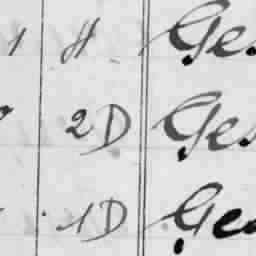 1 H Ges
2D Ges
1D Ges